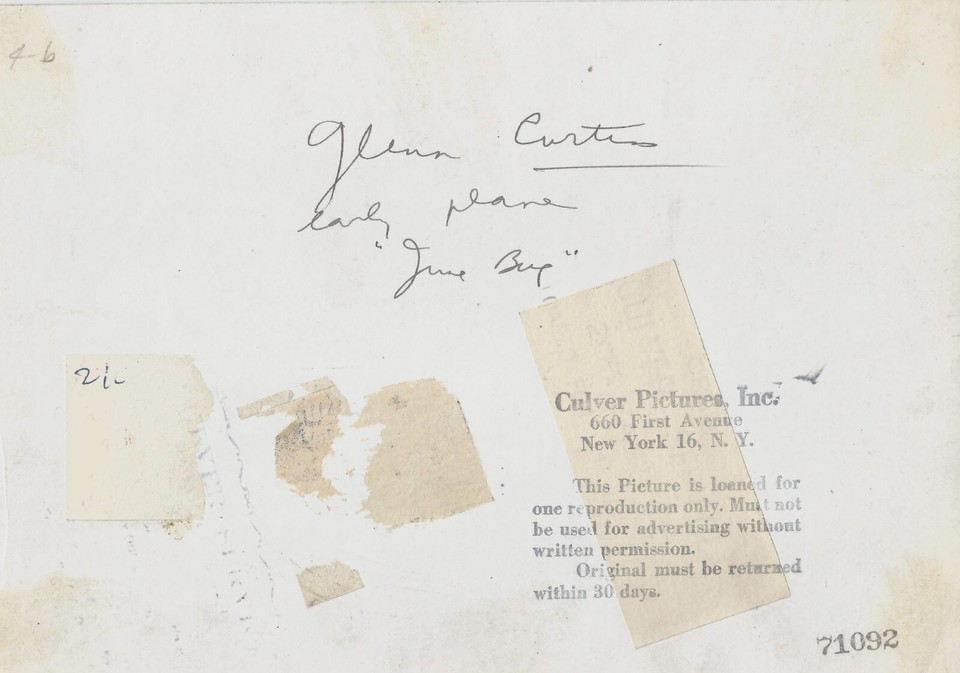 4-b
Glenn Curtis
early plane
"June Bug"
Culver Pictures, Inc.
660 First Avenue
New York 16, N. Y.
This Picture is loaned for
one reproduction only. Must not
be used for advertising without
written permission.
Original must be returned
within 30 days.
71092